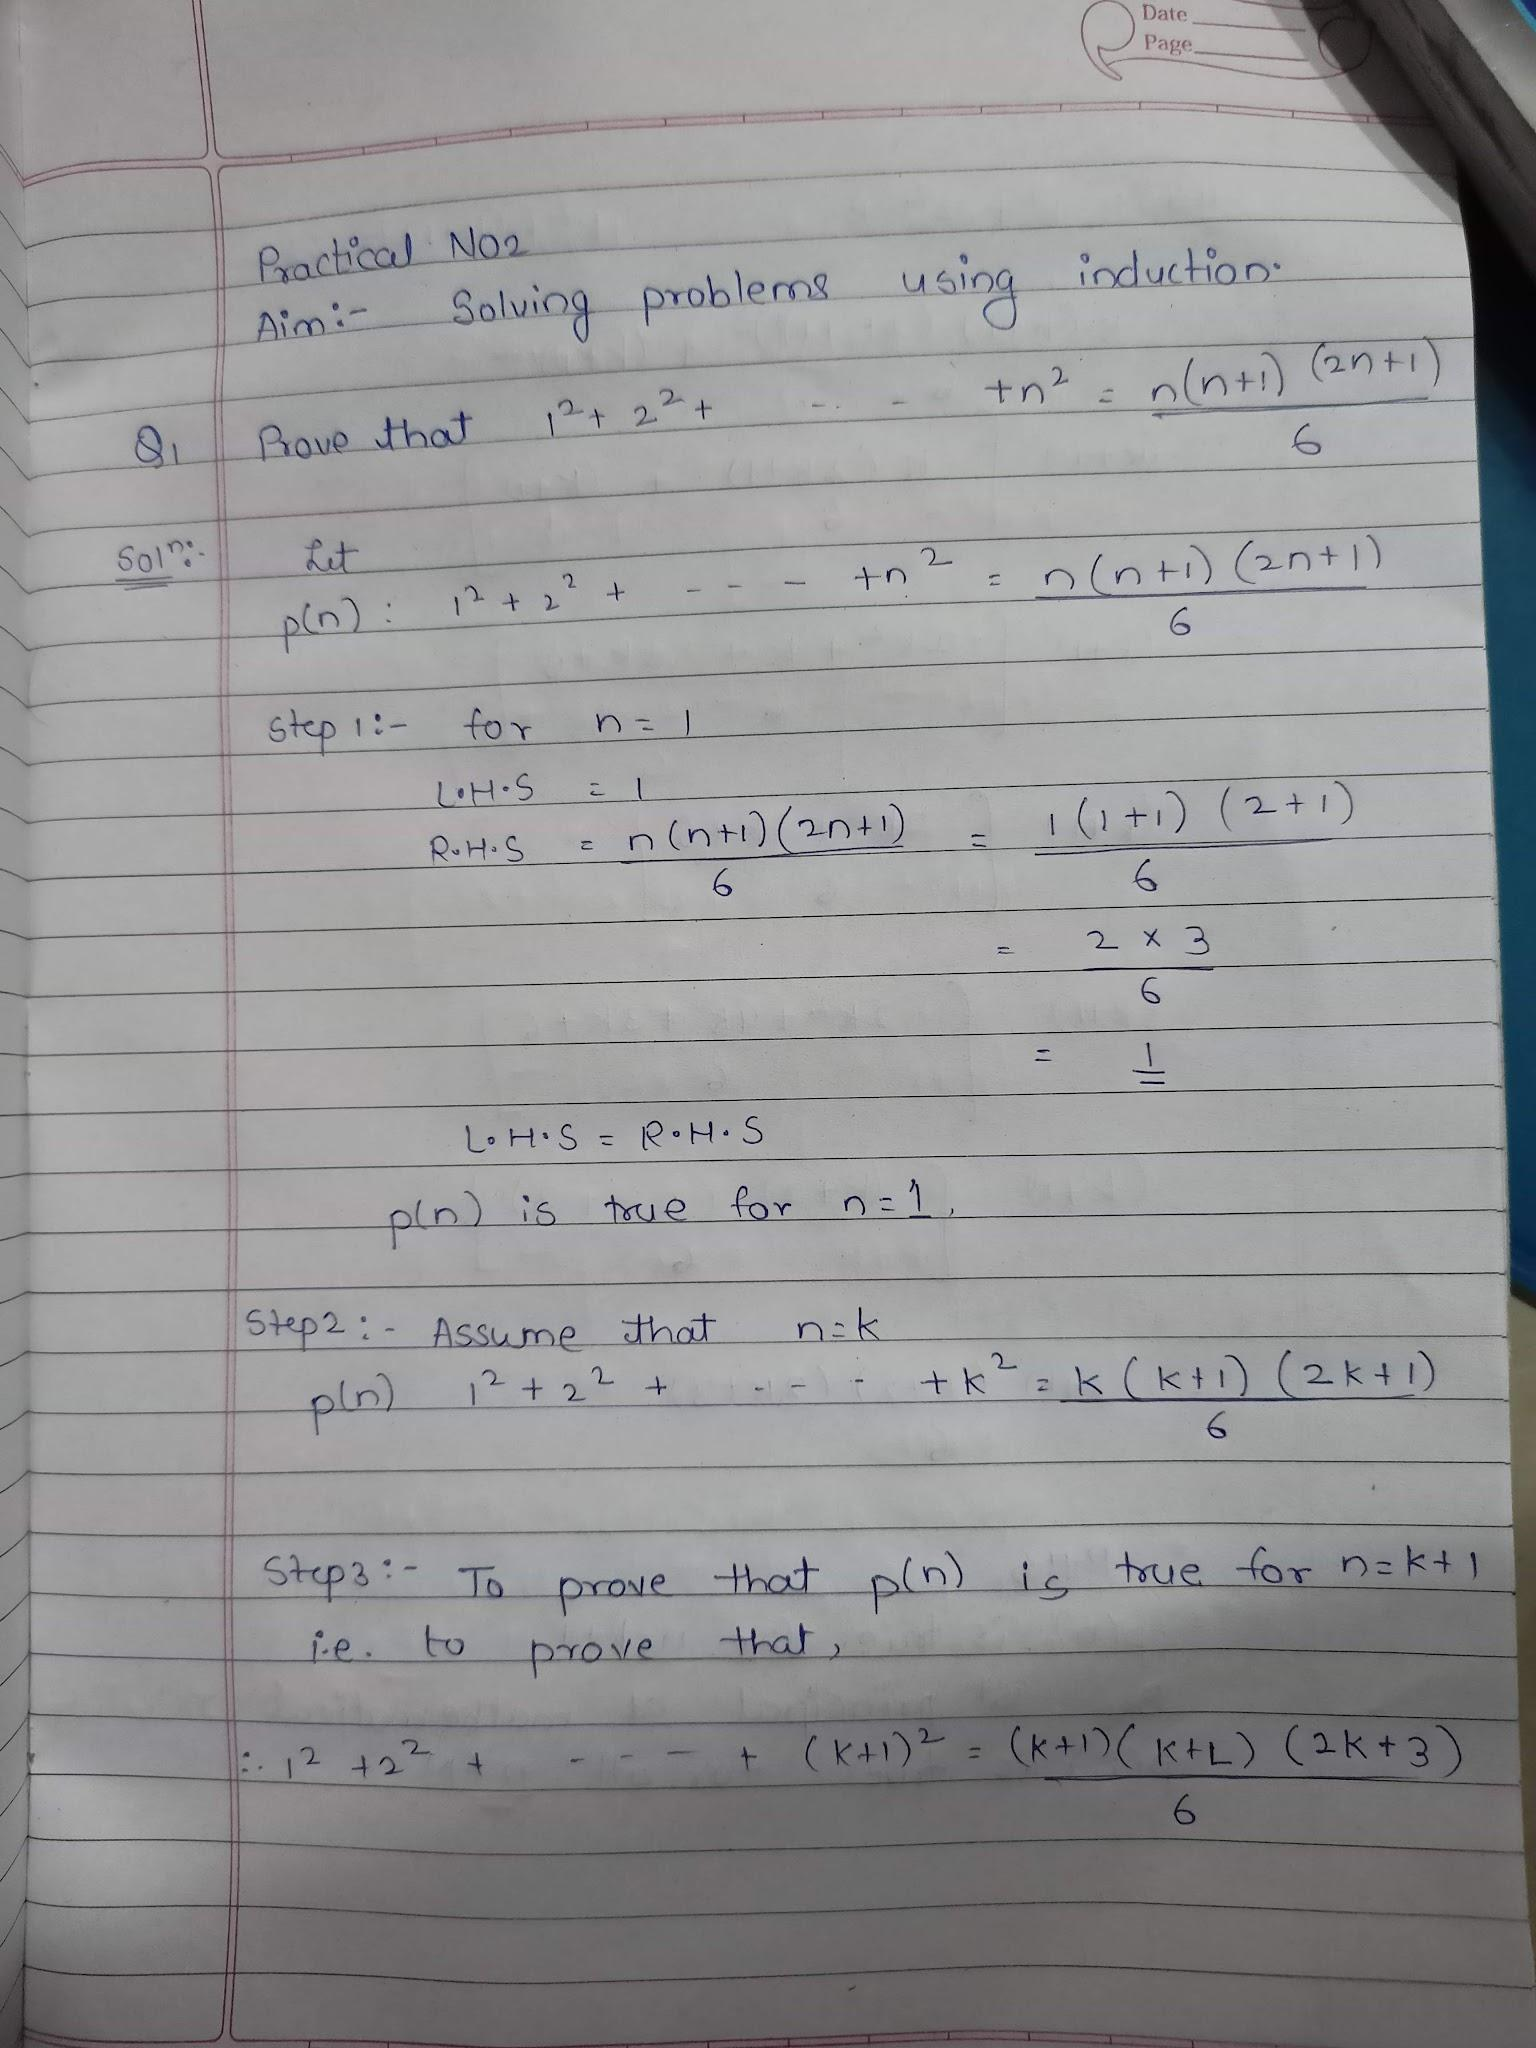 Date
Page
Practical No2
Aim:- Solving problems using induction.
Q1 Prove that 1² + 2² + - - - +n² = n(n+1) (2n+1)
6
Soln:- Let
p(n) : 1² + 2² + - - - +n² = n(n+1) (2n+1)
6
Step 1:- for n = 1
L.H.S = 1
R.H.S = n(n+1)(2n+1) = 1(1+1) (2+1)
6 6
= 2 × 3
6
= 1
L.H.S = R.H.S
p(n) is true for n=1.
Step2:- Assume that n=k
p(n) 1² + 2² + - - - +k² = k(k+1) (2k+1)
6
Step3:- To prove that p(n) is true for n=k+1
i.e. to prove that,
∴ 1² +2² + - - - + (k+1)² = (k+1)(k+L) (2k+3)
6